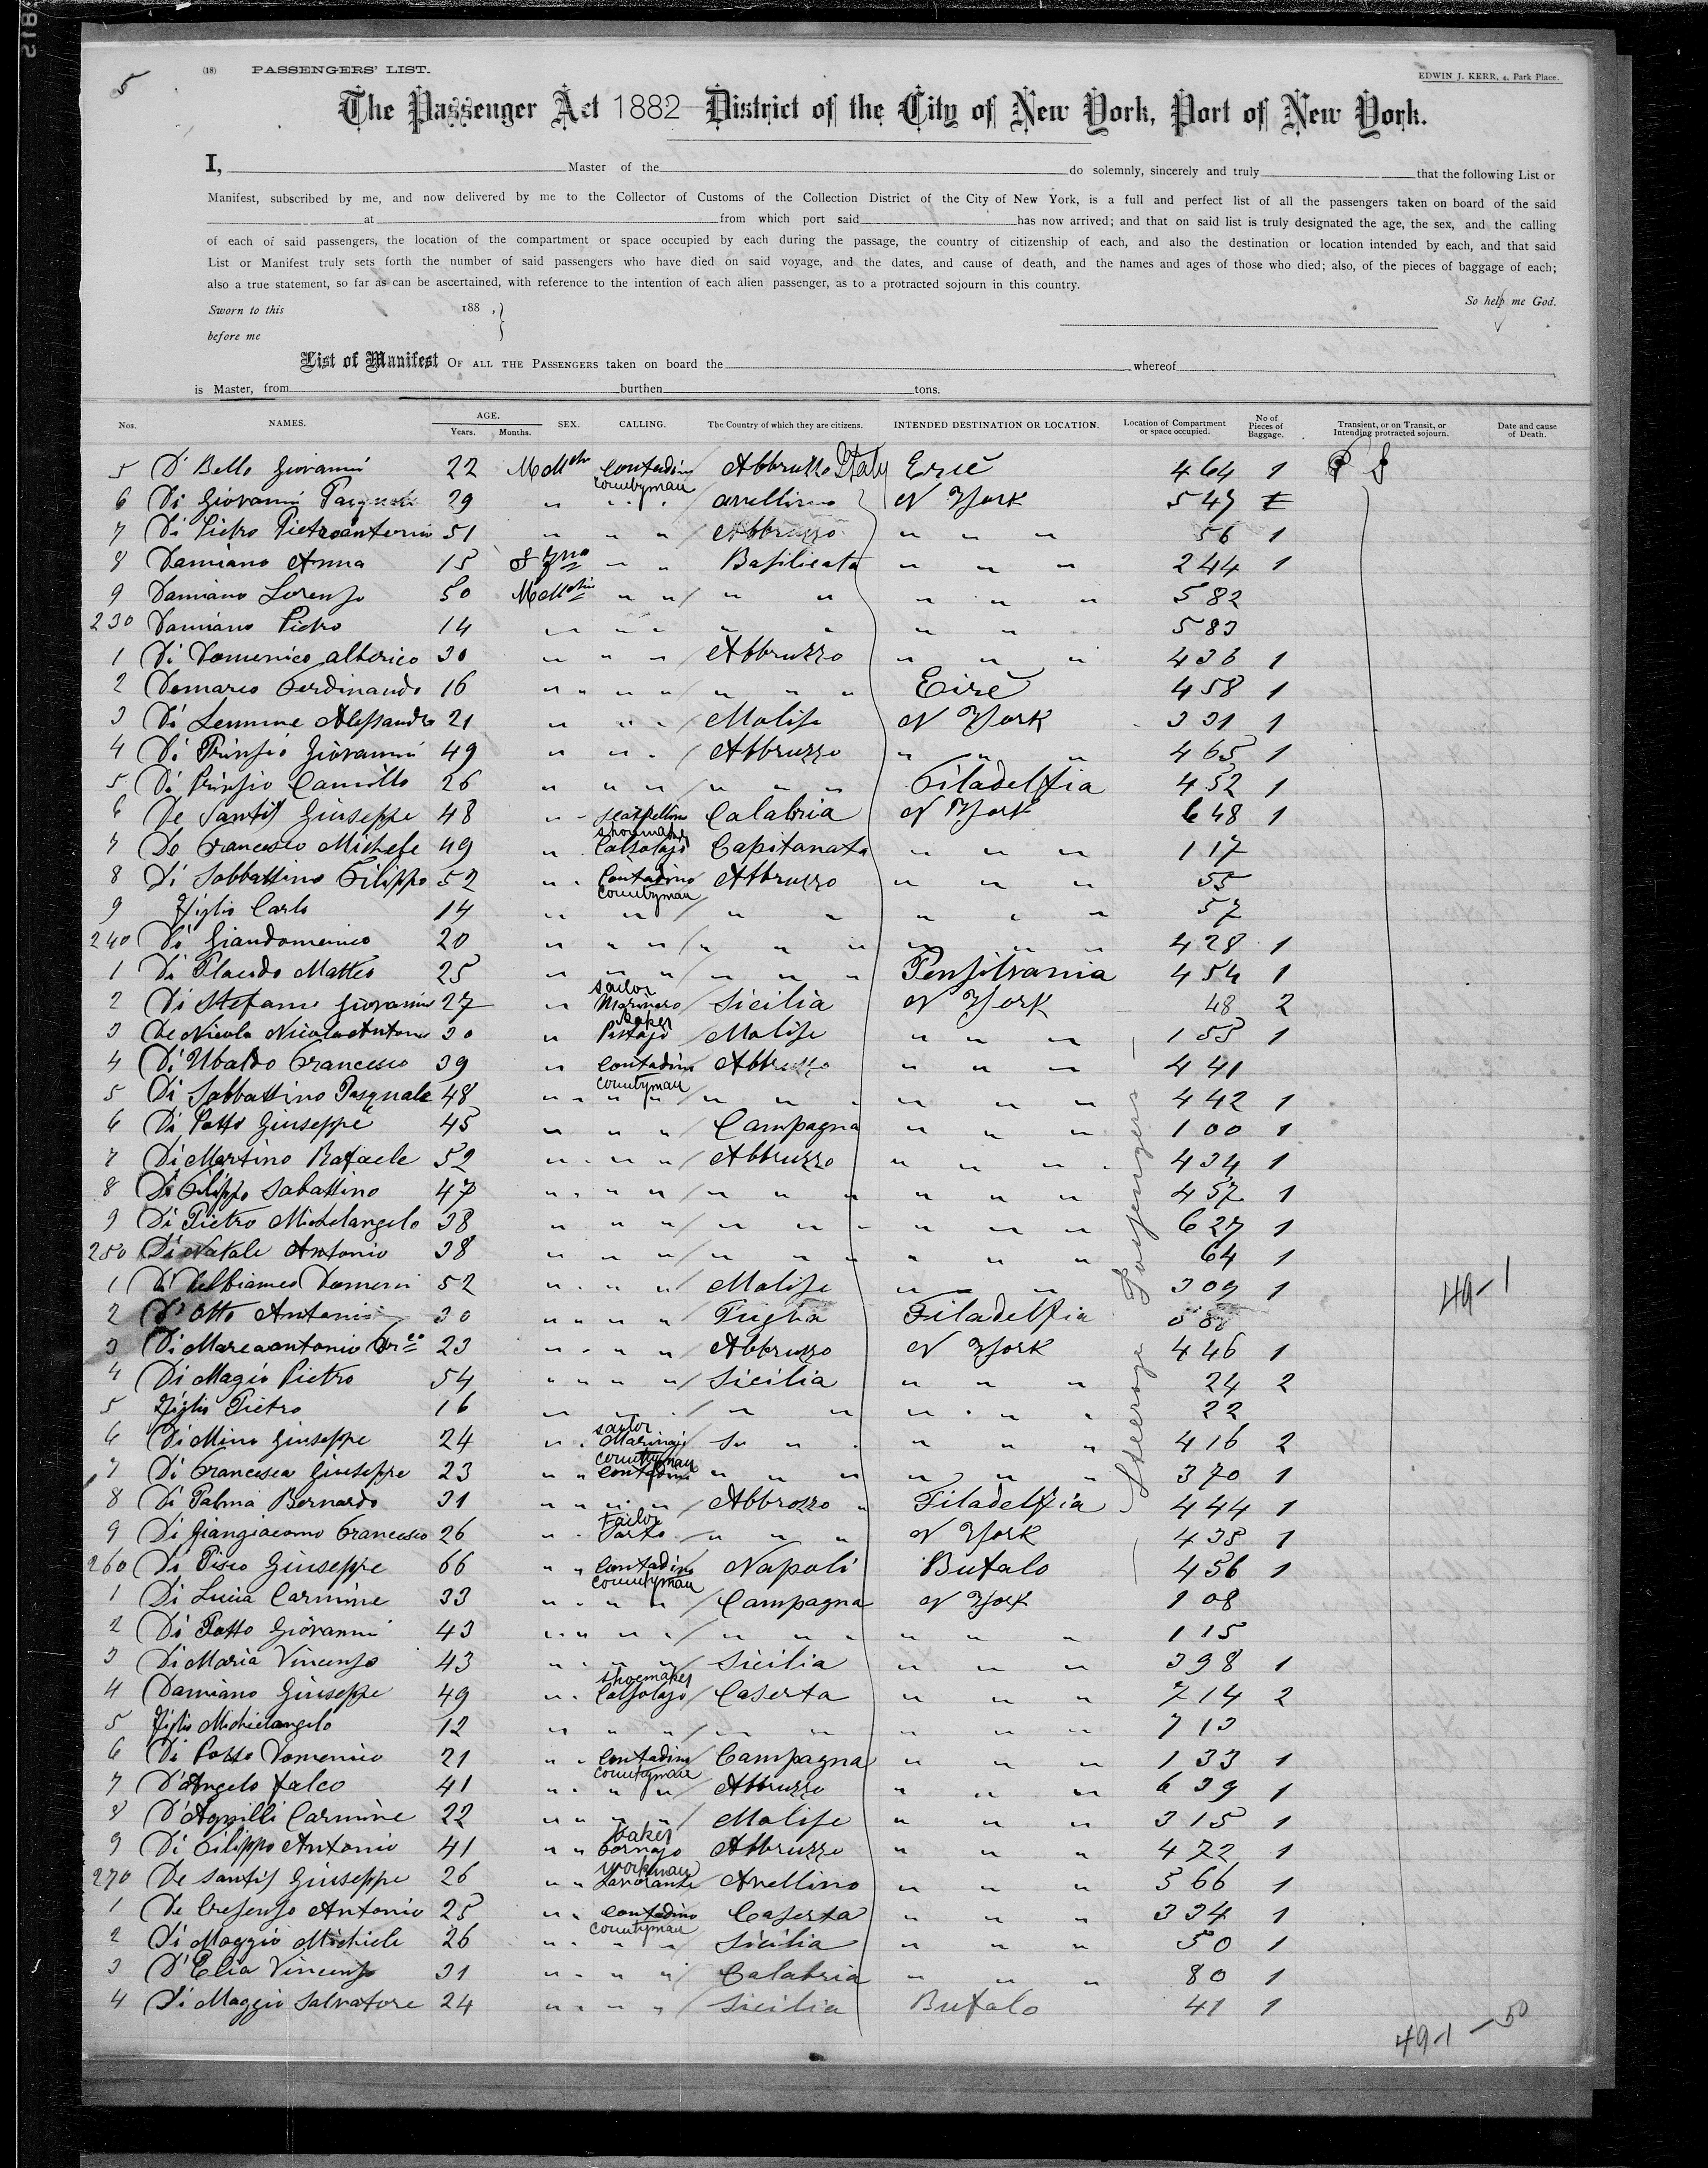 5
(18) PASSENGERS' LIST.
EDWIN J. KERR, 4, Park Place.
The Passenger Act 1882 District of the City of New York, Port of New York.
I, Master of the do solemnly, sincerely and truly that the following List or
Manifest, subscribed by me, and now delivered by me to the Collector of Customs of the Collection District of the City of New York, is a full and perfect list of all the passengers taken on board of the said
at from which port said has now arrived; and that on said list is truly designated the age, the sex, and the calling
of each of said passengers, the location of the compartment or space occupied by each during the passage, the country of citizenship of each, and also the destination or location intended by each, and that said
List or Manifest truly sets forth the number of said passengers who have died on said voyage, and the dates, and cause of death, and the names and ages of those who died; also, of the pieces of baggage of each;
also a true statement, so far as can be ascertained, with reference to the intention of each alien passenger, as to a protracted sojourn in this country.
So help me God.
Sworn to this 188 ,
before me
List of Manifest OF ALL THE PASSENGERS taken on board the whereof
is Master, from burthen tons.
Nos. NAMES. AGE. Years. Months. SEX. CALLING. The Country of which they are citizens. INTENDED DESTINATION OR LOCATION. Location of Compartment or space occupied. No of Pieces of Baggage. Transient, or on Transit, or Intending protracted sojourn. Date and cause of Death.
5 D' Bello Giovanni 22 Contadino countryman Abbruzzo Italy Erie 464 1
6 Di Giovanni Pasquale 29 " " " Avellino N York 547
7 Di Pietro Pietroantonio 51 " " " Abbruzzo " " " 56 1
8 Damiano Anna 15 " " Basilicata " " " 244 1
9 Damiano Lorenzo 50 " " " " " " " 582
230 Damiano Pietro 14 " " " " " " " 583
1 Di Domenico Alberico 30 " " " Abbruzzo " " " 436 1
2 Demarco Ferdinando 16 " " " " " " " Eirie 458 1
3 Di Lemme Alessandro 21 " " " Molise N York 331 1
4 Di Prinzio Giovanni 49 " " " Abbruzzo " " " 465 1
5 Di Prinzio Camillo 26 " " " " " " " Filadelfia 452 1
6 De Santis Giuseppe 48 " " Scarpellino Calabria N York 648 1
7 De Francesco Michele 49 " shoemaker Calzolajo Capitanata " " " 117
8 Di Sabbattino Filippo 52 " " Contadino countryman Abbruzzo " " " 55
9 Figlio Carlo 14 " " " " " " " " 57
240 Di Giandomenico 20 " " " " " " " " " 428 1
1 Di Placido Matteo 25 " " " " " " Pensilvania 454 1
2 Di Stefano Giovanni 27 " sailor Marinaro Sicilia N York 48 2
3 De Nicola Nicolantonio 30 " baker Molise " " " 155 1
4 Di Ubaldo Francesco 39 " Contadino countryman Abbruzzo " " " 441
5 Di Sabbattino Pasquale 48 " " " " " " " " " " 442 1
6 Di Potto Giuseppe 45 " " " Campagna " " " 100 1
7 Di Martino Rafaele 52 " " " " Abbruzzo " " " 434 1
8 Di Filippo Sabattino 47 " " " " " " " " " " 457 1
9 Di Pietro Michelangelo 38 " " " " " " " " " 627 1
250 Di Natale Antonio 38 " " " " " " " " " 64 1
1 52 " " " " Molise " " " 309 1
2 D'Otto Antonio 30 " " " " Puglia Filadelfia
3 Di Marcoantonio Fr.co 23 " " " " Abbruzzo N York 446 1
4 Di Magio Pietro 54 " " " " Sicilia " " " 24 2
5 Figlio Pietro 16 " " " " " " " " 22
6 Di Mino Giuseppe 24 " " sailor Marinajo " " " " " 416 2
7 Di Francesca Giuseppe 23 " " countryman Contadino " " " " " " 370 1
8 Di Palma Bernardo 31 " " " " Abbrozzo " Filadelfia 444 1
9 Di Giangiacomo Francesco 26 " " tailor Sarto " " " N York 438 1
260 Di Pisco Giuseppe 66 " " Contadino countryman Napoli Bufalo 456 1
1 Di Lucia Carmine 33 " " " " Campagna N York 108
2 Di Potto Giovanni 43 " " " " " " " " " " " 115
3 Di Maria Vincenzo 43 " " " " Sicilia " " " 398 1
4 Damiano Giuseppe 49 " " shoemaker Calzolajo Caserta " " " 714 2
5 Figlio Michielangelo 12 " " " " " " " " " 713
6 Di Potto Domenico 21 " " Contadino countryman Campagna " " " 133 1
7 D'Angelo Falco 41 " " " " Abbruzzo " " " 639 1
8 Carmine 22 " " " " Molise " " " 315 1
9 Di Filippo Antonio 41 " " baker Fornajo Abbruzzo " " " 472 1
270 De Santis Giuseppe 26 " " workman Lavorante Avellino " " " 566 1
1 De Cresenzo Antonio 25 " " Contadino countryman Caserta " " " 334 1
2 Di Maggio Michiele 26 " " " " Sicilia " " " 50 1
3 D'Elia Vincenzo 31 " " " " Calabria " " " 80 1
4 Di Maggio Salvatore 24 " " " " Sicilia Bufalo 41 1
Steerage Passengers
49-1
49-1 - 50